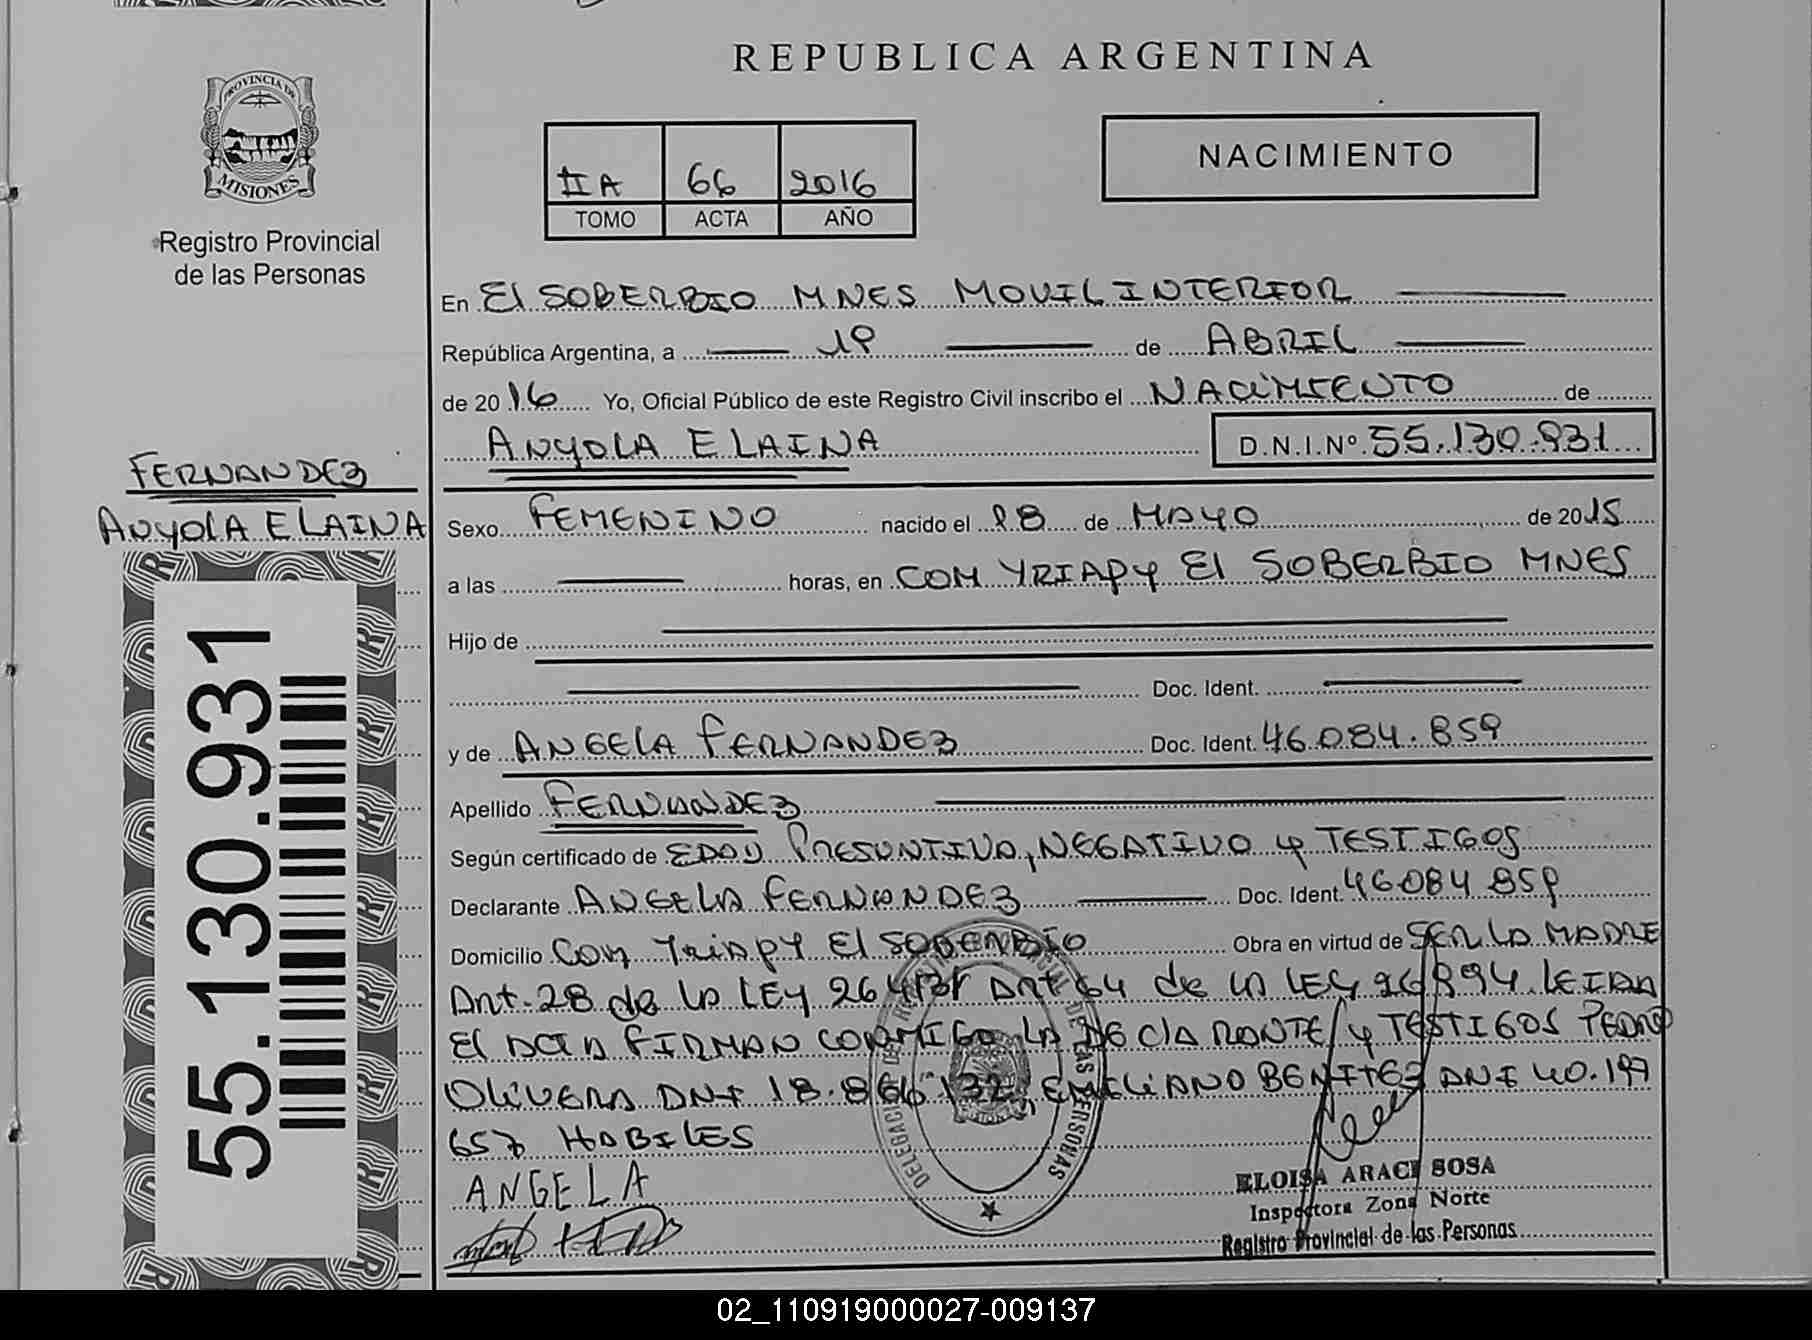 REPUBLICA ARGENTINA
PROVINCIA DE
MISIONES
Registro Provincial
de las Personas
IIA 66 2016
TOMO ACTA AÑO
NACIMIENTO
En El SOBERBIO MNES MOVIL INTERIOR
República Argentina, a 19 de ABRIL
de 2016 Yo, Oficial Público de este Registro Civil inscribo el NACIMIENTO de
ANYOLA ELAINA D.N.I.Nº 55.130.931
FERNANDEZ
ANYOLA ELAINA
55.130.931
Sexo FEMENINO nacido el 18 de MAYO de 2015
a las horas, en COM YRIAPY El SOBERBIO MNES
Hijo de
Doc. Ident.
y de ANGELA FERNANDEZ Doc. Ident. 46.084.859
Apellido FERNANDEZ
Según certificado de EDAD PRESUNTIVA, NEGATIVO y TESTIGOS
Declarante ANGELA FERNANDEZ Doc. Ident. 46084 859
Domicilio COM YRIAPY El SOBERBIO Obra en virtud de SER LA MADRE
Art. 28 de la LEY 26413 Art 64 de la LEY 26994 LEIDA
El ACTA FIRMAN CONMIGO LA DECLARANTE y TESTIGOS PEDRO
OLIVERA DNI 18.866.132, EMILIANO BENITEZ DNI 40.197
657 HABILES
ANGELA
DELEGACION DE LAS PERSONAS
ELOISA ARACI SOSA
Inspectora Zona Norte
Registro Provincial de las Personas
02_110919000027-009137